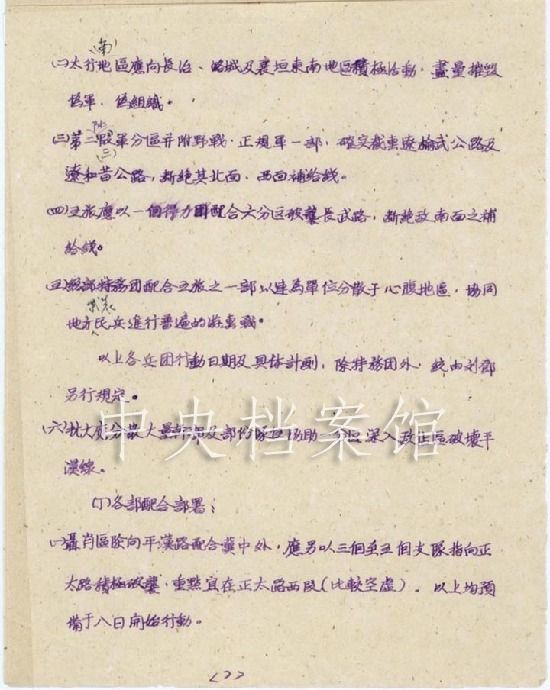 (南)
㈠太行地區應向長治、潞城及襄垣東南地區積極活動，盡量摧毀
偽軍、偽組織。
㈢第二
軍分區并附野戰、正規軍一部，確實截斷遼榆武公路及
(三)
遼和昔公路，斷絕其北面、西面補給綫。
㈣五旅應以一個得力團配合六分区破襲長武路，斷絕敌南面之補
給綫。
㈤ 特務团配合五旅之一部以連為單位分散于心腹地區，協同
武裝
地方民兵進行普遍的游擊戰。
以上各兵团行動日期及具体計劃，除特務团外，統由刘鄧
另行規定。
㈥抗大應分散大量幹部及部份隊
協助
深入敌正區破壞平
漢綫。
(丁)各部配合部署：
㈠聶肖區除向平漢路配合冀中外，應另以三個至五個支隊指向正
太路積極破襲，重點宜在正太路西段(比較空虛)。以上均預
備于八日開始行動。
<7>
中央档案馆